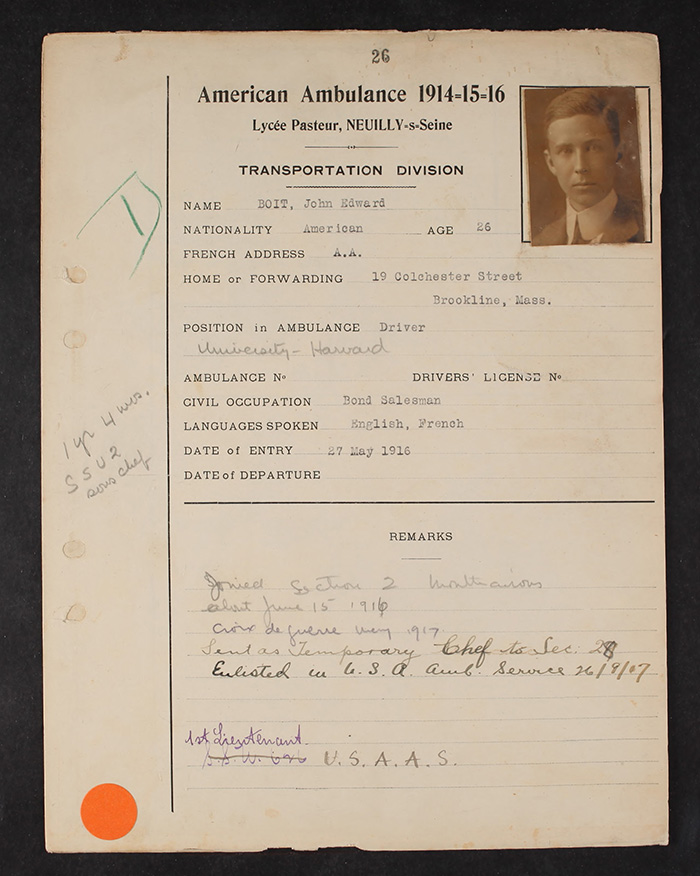 26
American Ambulance 1914-15-16
Lycée Pasteur, NEUILLY-s-Seine
TRANSPORTATION DIVISION
NAME BOIT, John Edward
NATIONALITY American AGE 26
FRENCH ADDRESS A.A.
HOME or FORWARDING 19 Colchester Street
Brookline, Mass.
POSITION in AMBULANCE Driver
University - Harvard
AMBULANCE No DRIVERS' LICENSE No
CIVIL OCCUPATION Bond Salesman
LANGUAGES SPOKEN English, French
DATE of ENTRY 27 May 1916
DATE of DEPARTURE
1 yr 4 mos.
S S U 2
sous chef
REMARKS
Joined Section 2
about June 15 1916
Croix de guerre May 1917
Sent as Temporary Chef to Sec.
Enlisted in U.S.A. Amb. Service 26/9/17
1st Lieutenant.
U. S. A. A. S.